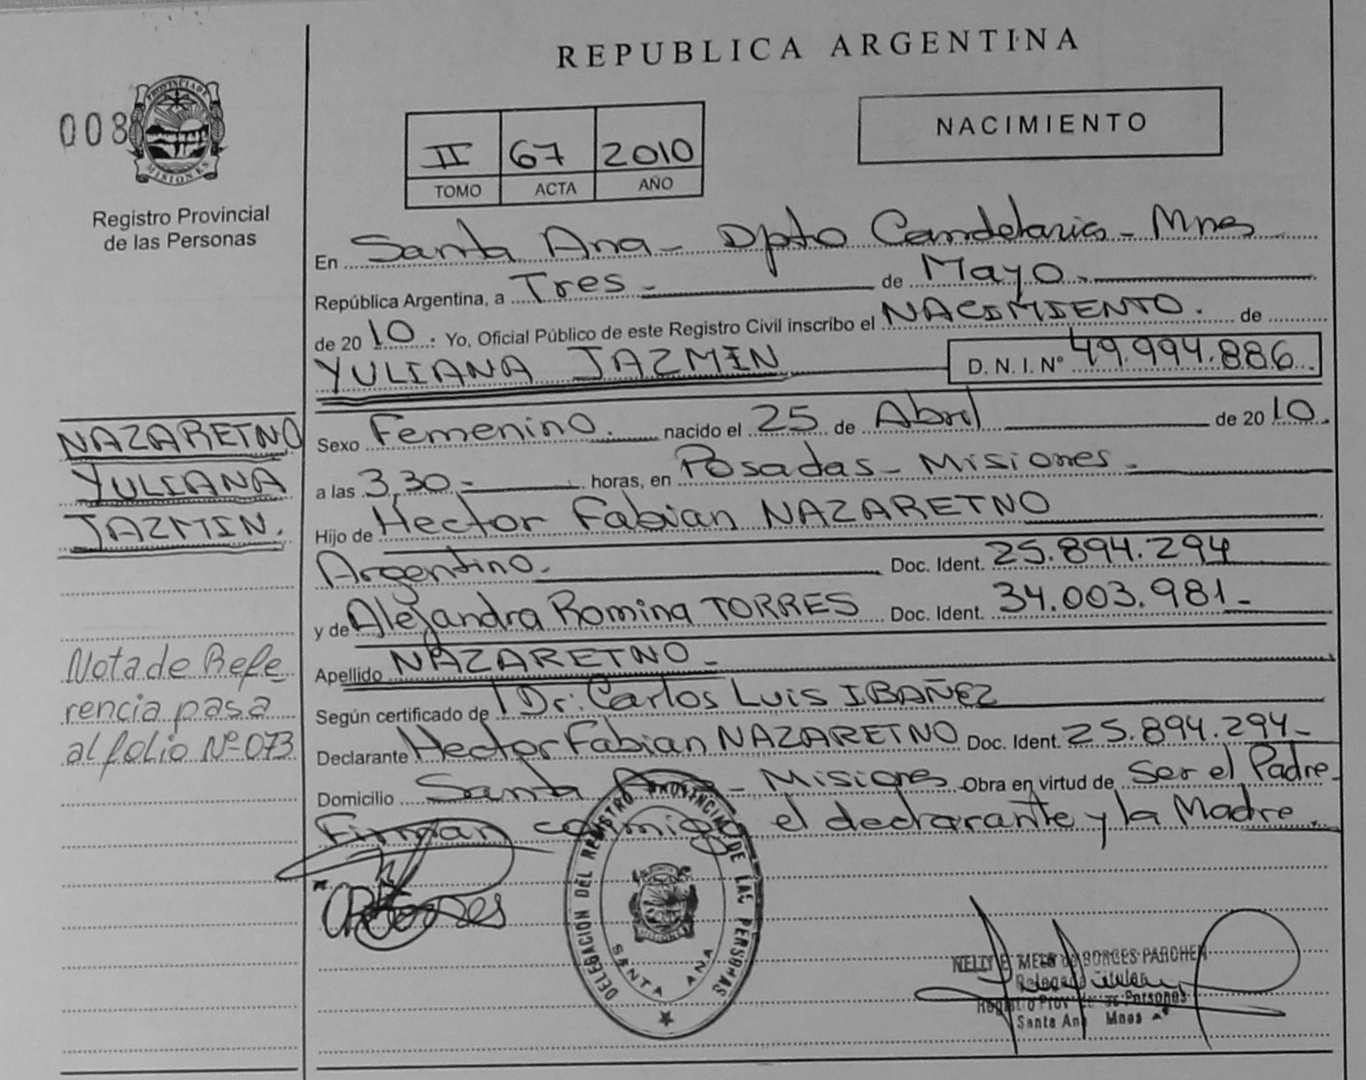 REPUBLICA ARGENTINA
008
PROVINCIA DE MISIONES
Registro Provincial
de las Personas
II 67 2010
TOMO ACTA AÑO
NACIMIENTO
En Santa Ana - Dpto Candelaria - Mnes
República Argentina, a Tres - de Mayo -
de 2010. Yo, Oficial Público de este Registro Civil inscribo el NACIMIENTO. de
YULIANA JAZMIN D. N. I. Nº 49.994.886
Sexo Femenino. nacido el 25 de Abril de 2010.
a las 3,30 - horas, en Posadas - Misiones -
Hijo de Hector Fabian NAZARETNO
Argentino. Doc. Ident. 25.894.294
y de Alejandra Romina TORRES Doc. Ident. 34.003.981 -
Apellido NAZARETNO -
Según certificado de Dr. Carlos Luis IBAÑEZ
Declarante Hector Fabian NAZARETNO Doc. Ident. 25.894.294 -
Domicilio Santa Ana - Misiones Obra en virtud de Ser el Padre -
Firman conmigo el declarante y la Madre.
NAZARETNO
YULIANA
JAZMIN.
Nota de Refe
rencia pasa
al folio Nº 073
DELEGACIÓN DEL REGISTRO PROVINCIAL DE LAS PERSONAS
MISIONES
SANTA ANA
NELLY E. BORGES PAROHEN
Titular
Personas
Santa Ana Mnes